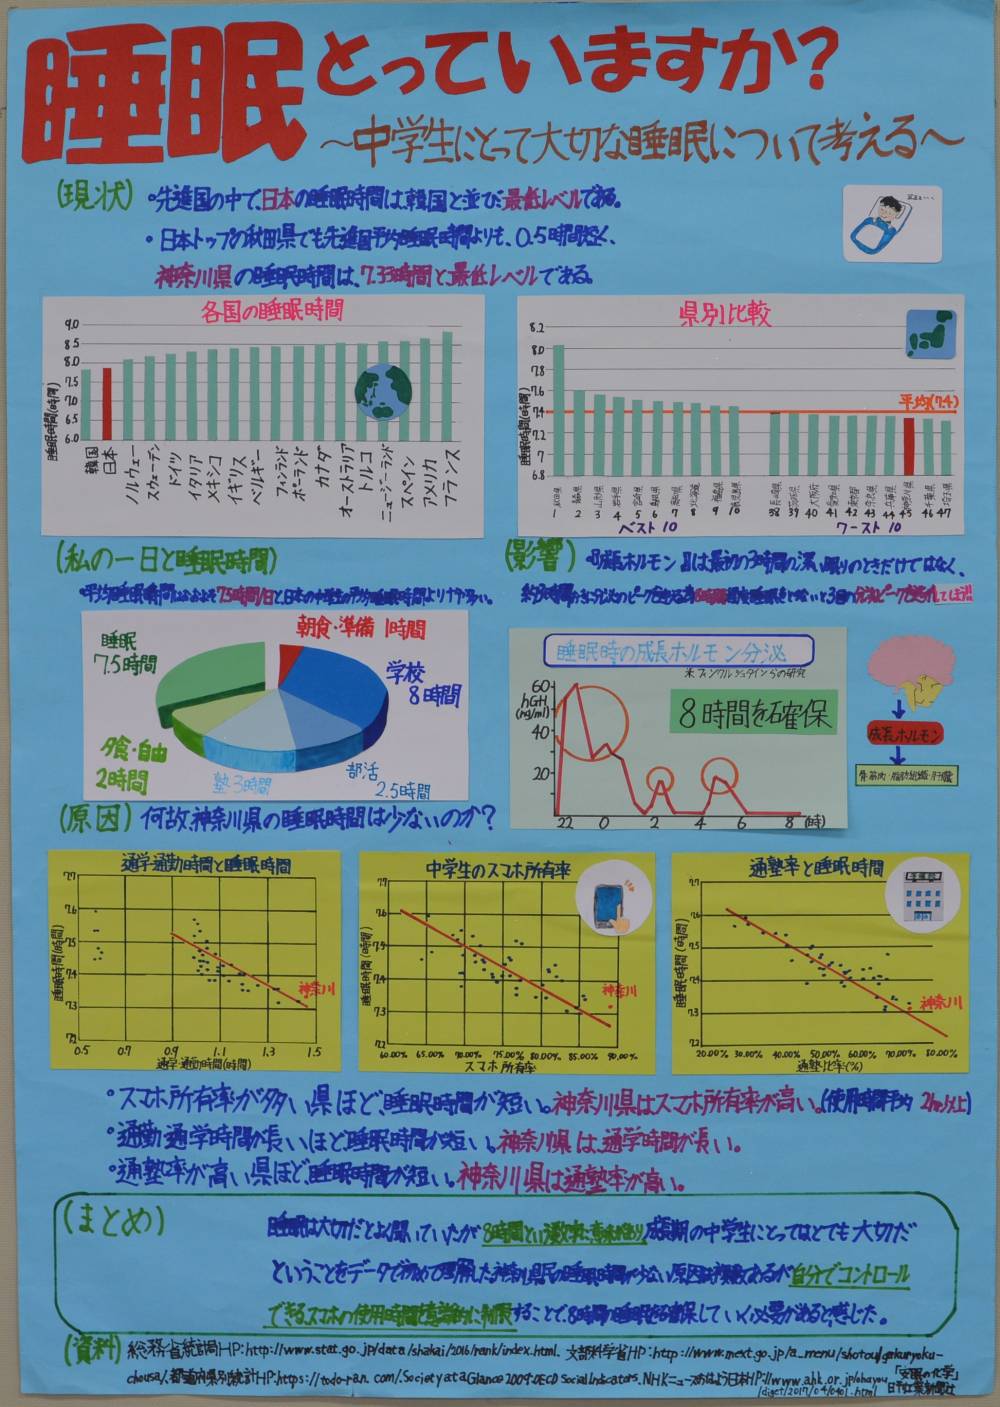 睡眠とっていますか?
～中学生にとって大切な睡眠について考える～
(現状)
・先進国の中で、日本の睡眠時間は、韓国と並び最低レベルである。
・日本トップの秋田県でも先進国平均睡眠時間よりも、0.5時間短く、
神奈川県の睡眠時間は、7.33時間と、最低レベルである。
各国の睡眠時間
睡眠時間(時間)
9.0
8.5
8.0
7.5
7.0
6.5
6.0
韓国 日本 ノルウェー スウェーデン ドイツ イタリア メキシコ イギリス ベルギー フィンランド ポーランド カナダ オーストラリア トルコ ニュージーランド スペイン アメリカ フランス
県別比較
睡眠時間(時間)
8.2
8.0
7.8
7.6
7.4
7.2
7
6.8
平均(7.4)
1 2 3 4 5 6 7 8 9 10 38 39 40 41 42 43 44 45 46 47
ベスト10 ワースト10
(私の一日と睡眠時間)
・平均睡眠時間はおおよそ7.5時間/日と、日本の中学生の平均睡眠時間よりやや多い。
睡眠
7.5時間
朝食・準備 1時間
学校
8時間
部活
2.5時間
塾3時間
夕食・自由
2時間
(影響)
・『成長ホルモン』は最初の3時間の深い眠りのときだけではなく、
睡眠時の成長ホルモン分泌
8時間を確保
hGH
(ng/ml)
60
40
20
22 0 2 4 6 8 (時)
成長ホルモン
骨・筋肉・脂肪組織・肝臓
(原因) 何故、神奈川県の睡眠時間は少ないのか?
通学・通勤時間と睡眠時間
睡眠時間(時間)
7.7
7.6
7.5
7.4
7.3
7.2
神奈川
0.5 0.7 0.9 1.1 1.3 1.5
通学・通勤時間(時間)
中学生のスマホ所有率
睡眠時間(時間)
7.7
7.6
7.5
7.4
7.3
7.2
神奈川
60.00% 65.00% 70.00% 75.00% 80.00% 85.00% 90.00%
スマホ所有率
通塾率と睡眠時間
睡眠時間(時間)
7.7
7.6
7.5
7.4
7.3
7.2
神奈川
20.00% 30.00% 40.00% 50.00% 60.00% 70.00% 80.00%
通塾比率(%)
・スマホ所有率が多い県ほど、睡眠時間が短い。神奈川県はスマホ所有率が高い。(使用時間平均 2hr以上)
・通勤・通学時間が長いほど、睡眠時間が短い。神奈川県は、通学時間が長い。
・通塾率が高い県ほど、睡眠時間が短い。神奈川県は通塾率が高い。
(まとめ)
睡眠は大切だとよく聞いていたが8時間という数字に意味があり成長期の中学生にとってはとても大切だ
ということをデータで初めて理解した。神奈川県民の睡眠時間が少ない原因は複数あるが自分でコントロール
できるスマホの使用時間を意識的に制限することで、8時間の睡眠を確保していく必要があると感じた。
(資料) 総務省統計局HP:http://www.stat.go.jp/data/shakai/2016/rank/index.html. 文部科学省HP:http://www.mext.go.jp/a_menu/shotou/gakuryoku-
chousa/.都道府県別統計HP:https://todo-ran.com/.Society at a Glance 2009-OECD Social Indicators. NHKニュースおはよう日本HP://www.nhk.or.jp/ohayou
/digest/2017/04/0401.html
「安眠の化学」
日刊工業新聞社